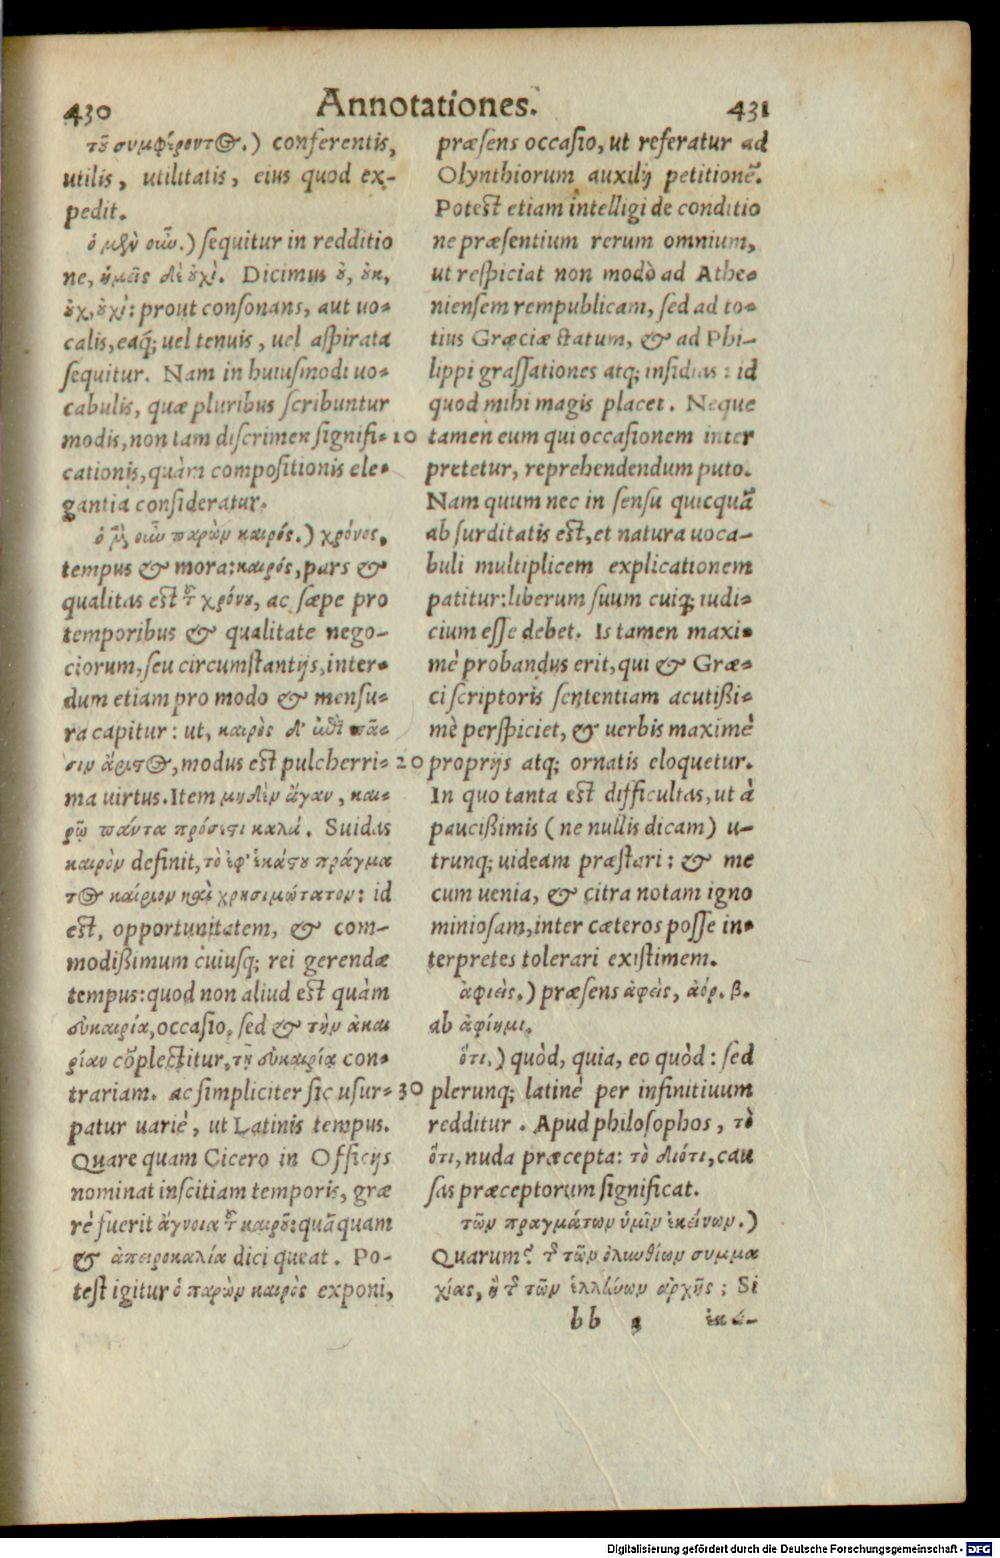 430 Annotationes. 431
τοῦ συμφέροντος.) conferentis,
utilis, utilitatis, eius quod ex-
pedit.
ὁ μὲν οὖν.) sequitur in redditio
ne, ἡμεῖς δὲ οὐχί. Dicimus οὐ, οὐκ,
οὐχ, οὐχί: prout consonans, aut uo-
calis, eaq; uel tenuis, uel aspirata
sequitur. Nam in huiusmodi uo-
cabulis, quæ pluribus scribuntur
modis, non tam discrimen signifi- 10
cationis, quàm compositionis ele-
gantia consideratur.
ὁ μὲν οὖν παρὼν καιρός.) χρόνος,
tempus & mora: καιρός, pars &
qualitas est τοῦ χρόνου, ac sæpe pro
temporibus & qualitate nego-
ciorum, seu circumstantijs, inter-
dum etiam pro modo & mensu-
ra capitur: ut, καιρὸς δ' ἐπὶ πᾶ-
σιν ἄριστος, modus est pulcherri- 20
ma uirtus. Item μηδὲν ἄγαν, και-
ρῷ πάντα πρόσεστι καλά. Suidas
καιρὸν definit, τὸ ἐφ' ἑκάστου πράγμα
τος καίριον καὶ χρησιμώτατον: id
est, opportunitatem, & com-
modißimum cuiusq; rei gerendæ
tempus: quod non aliud est quàm
εὐκαιρία, occasio, sed & τὴν ἀκαι
ρίαν cõplectitur, τῇ εὐκαιρίᾳ con-
trariam. ac simpliciter sic usur- 30
patur uariè, ut Latinis tempus.
Quare quam Cicero in Officijs
nominat inscitiam temporis, græ
rè fuerit ἄγνοια τοῦ καιροῦ: quãquam
& ἀπειροκαλία dici queat. Po-
test igitur ὁ παρὼν καιρὸς exponi,
præsens occasio, ut referatur ad
Olynthiorum auxilij petitionẽ.
Potest etiam intelligi de conditio
ne præsentium rerum omnium,
ut respiciat non modò ad Athe-
niensem rempublicam, sed ad to-
tius Græciæ statum, & ad Phi-
lippi grassationes atq; insidias: id
quod mihi magis placet. Neque
tamen eum qui occasionem inter
pretetur, reprehendendum puto.
Nam quum nec in sensu quicquã
absurditatis est, et natura uoca-
buli multiplicem explicationem
patitur: liberum suum cuiq; iudi-
cium esse debet. Is tamen maxi-
mè probandus erit, qui & Græ-
ci scriptoris sententiam acutißi-
mè perspiciet, & uerbis maximè
proprijs atq; ornatis eloquetur.
In quo tanta est difficultas, ut à
paucißimis (ne nullis dicam) u-
trunq; uideam præstari: & me
cum uenia, & citra notam igno
miniosam, inter cæteros posse in-
terpretes tolerari existimem.
ἀφιείς.) præsens ἀφείς, ἀόρ. β.
ab ἀφίημι.
ὅτι.) quòd, quia, eo quòd: sed
plerunq; latinè per infinitiuum
redditur. Apud philosophos, τὸ
ὅτι, nuda præcepta: τὸ διότι, cau
sas præceptorum significat.
τῶν πραγμάτων ὑμῖν ἐκείνων.)
Quarum? τῆς τῶν ὀλυνθίων συμμα
χίας, ἢ τῆς τῶν ἑλλήνων ἀρχῆς; Si
bb 3
Digitalisierung gefördert durch die Deutsche Forschungsgemeinschaft - DFG